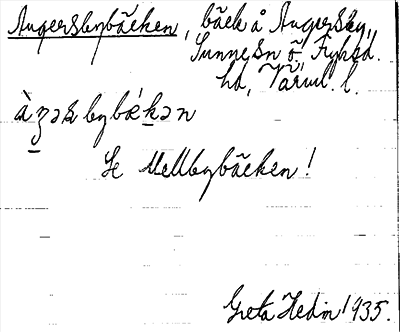 Augerskybäcken, bäck å Augersby,
Sunne sn ö., Fryksd.
hd, Värml. l.
àʒəsbybǽkən
Se Mellbybäcken!
Greta Hedin 1935.